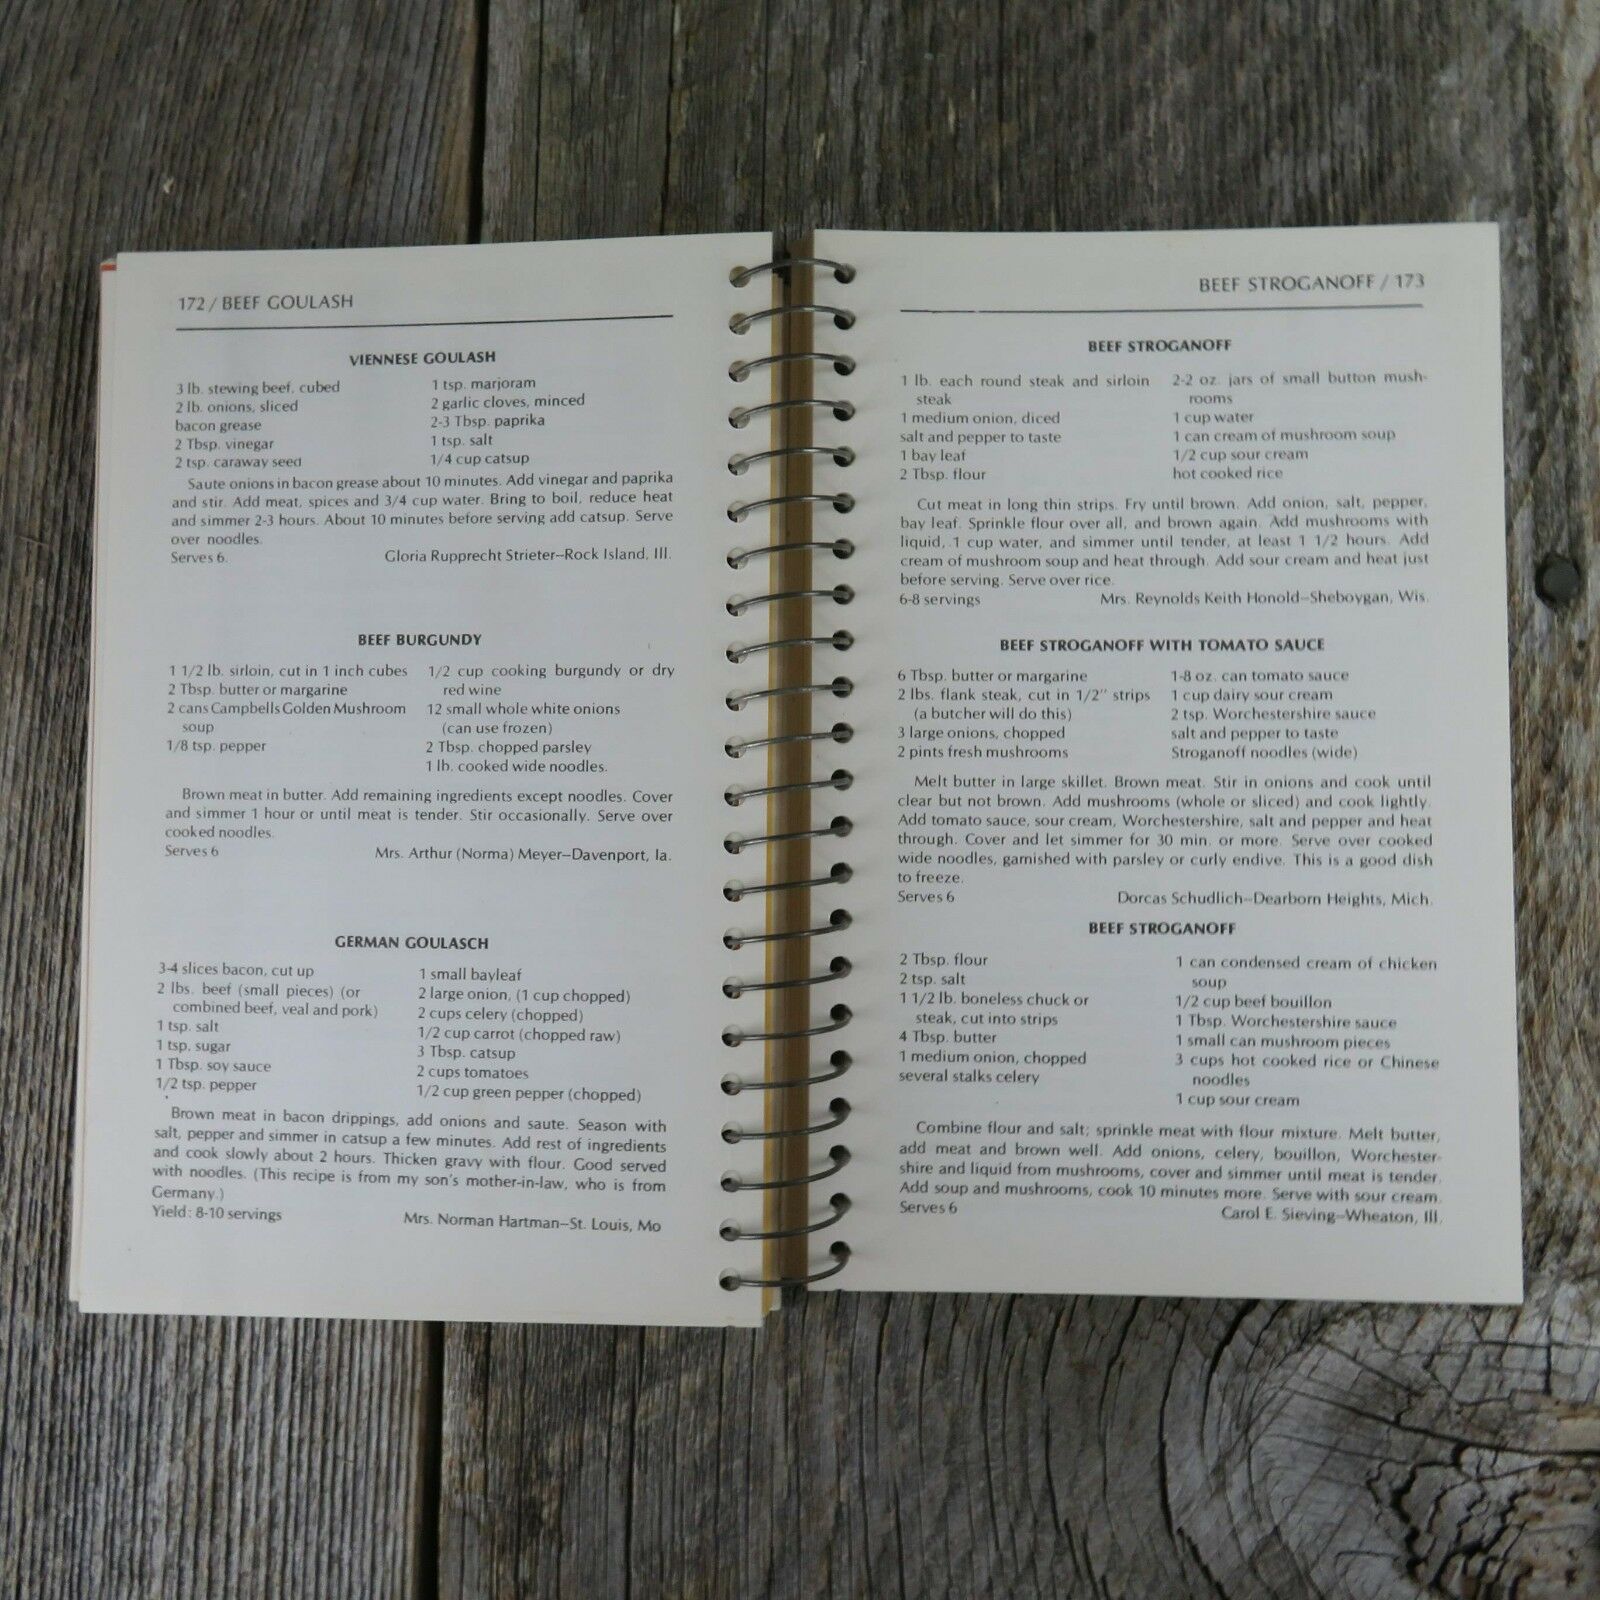 172 / BEEF GOULASH
VIENNESE GOULASH
3 lb. stewing beef, cubed
2 lb. onions, sliced
bacon grease
2 Tbsp. vinegar
2 tsp. caraway seed
1 tsp. marjoram
2 garlic cloves, minced
2-3 Tbsp. paprika
1 tsp. salt
1/4 cup catsup
Saute onions in bacon grease about 10 minutes. Add vinegar and paprika
and stir. Add meat, spices and 3/4 cup water. Bring to boil, reduce heat
and simmer 2-3 hours. About 10 minutes before serving add catsup. Serve
over noodles.
Serves 6. Gloria Rupprecht Strieter—Rock Island, Ill.
BEEF BURGUNDY
1 1/2 lb. sirloin, cut in 1 inch cubes
2 Tbsp. butter or margarine
2 cans Campbells Golden Mushroom
soup
1/8 tsp. pepper
1/2 cup cooking burgundy or dry
red wine
12 small whole white onions
(can use frozen)
2 Tbsp. chopped parsley
1 lb. cooked wide noodles.
Brown meat in butter. Add remaining ingredients except noodles. Cover
and simmer 1 hour or until meat is tender. Stir occasionally. Serve over
cooked noodles.
Serves 6 Mrs. Arthur (Norma) Meyer—Davenport, Ia.
GERMAN GOULASCH
3-4 slices bacon, cut up
2 lbs. beef (small pieces) (or
combined beef, veal and pork)
1 tsp. salt
1 tsp. sugar
1 Tbsp. soy sauce
1/2 tsp. pepper
1 small bayleaf
2 large onion, (1 cup chopped)
2 cups celery (chopped)
1/2 cup carrot (chopped raw)
3 Tbsp. catsup
2 cups tomatoes
1/2 cup green pepper (chopped)
Brown meat in bacon drippings, add onions and saute. Season with
salt, pepper and simmer in catsup a few minutes. Add rest of ingredients
and cook slowly about 2 hours. Thicken gravy with flour. Good served
with noodles. (This recipe is from my son's mother-in-law, who is from
Germany.)
Yield: 8-10 servings Mrs. Norman Hartman—St. Louis, Mo
BEEF STROGANOFF / 173
BEEF STROGANOFF
1 lb. each round steak and sirloin
steak
1 medium onion, diced
salt and pepper to taste
1 bay leaf
2 Tbsp. flour
2-2 oz. jars of small button mush-
rooms
1 cup water
1 can cream of mushroom soup
1/2 cup sour cream
hot cooked rice
Cut meat in long thin strips. Fry until brown. Add onion, salt, pepper,
bay leaf. Sprinkle flour over all, and brown again. Add mushrooms with
liquid, 1 cup water, and simmer until tender, at least 1 1/2 hours. Add
cream of mushroom soup and heat through. Add sour cream and heat just
before serving. Serve over rice.
6-8 servings Mrs. Reynolds Keith Honold—Sheboygan, Wis.
BEEF STROGANOFF WITH TOMATO SAUCE
6 Tbsp. butter or margarine
2 lbs. flank steak, cut in 1/2" strips
(a butcher will do this)
3 large onions, chopped
2 pints fresh mushrooms
1-8 oz. can tomato sauce
1 cup dairy sour cream
2 tsp. Worchestershire sauce
salt and pepper to taste
Stroganoff noodles (wide)
Melt butter in large skillet. Brown meat. Stir in onions and cook until
clear but not brown. Add mushrooms (whole or sliced) and cook lightly.
Add tomato sauce, sour cream, Worchestershire, salt and pepper and heat
through. Cover and let simmer for 30 min. or more. Serve over cooked
wide noodles, garnished with parsley or curly endive. This is a good dish
to freeze.
Serves 6 Dorcas Schudlich—Dearborn Heights, Mich.
BEEF STROGANOFF
2 Tbsp. flour
2 tsp. salt
1 1/2 lb. boneless chuck or
steak, cut into strips
4 Tbsp. butter
1 medium onion, chopped
several stalks celery
1 can condensed cream of chicken
soup
1/2 cup beef bouillon
1 Tbsp. Worchestershire sauce
1 small can mushroom pieces
3 cups hot cooked rice or Chinese
noodles
1 cup sour cream
Combine flour and salt; sprinkle meat with flour mixture. Melt butter,
add meat and brown well. Add onions, celery, bouillon, Worchester-
shire and liquid from mushrooms, cover and simmer until meat is tender.
Add soup and mushrooms, cook 10 minutes more. Serve with sour cream.
Serves 6 Carol E. Sieving—Wheaton, Ill.